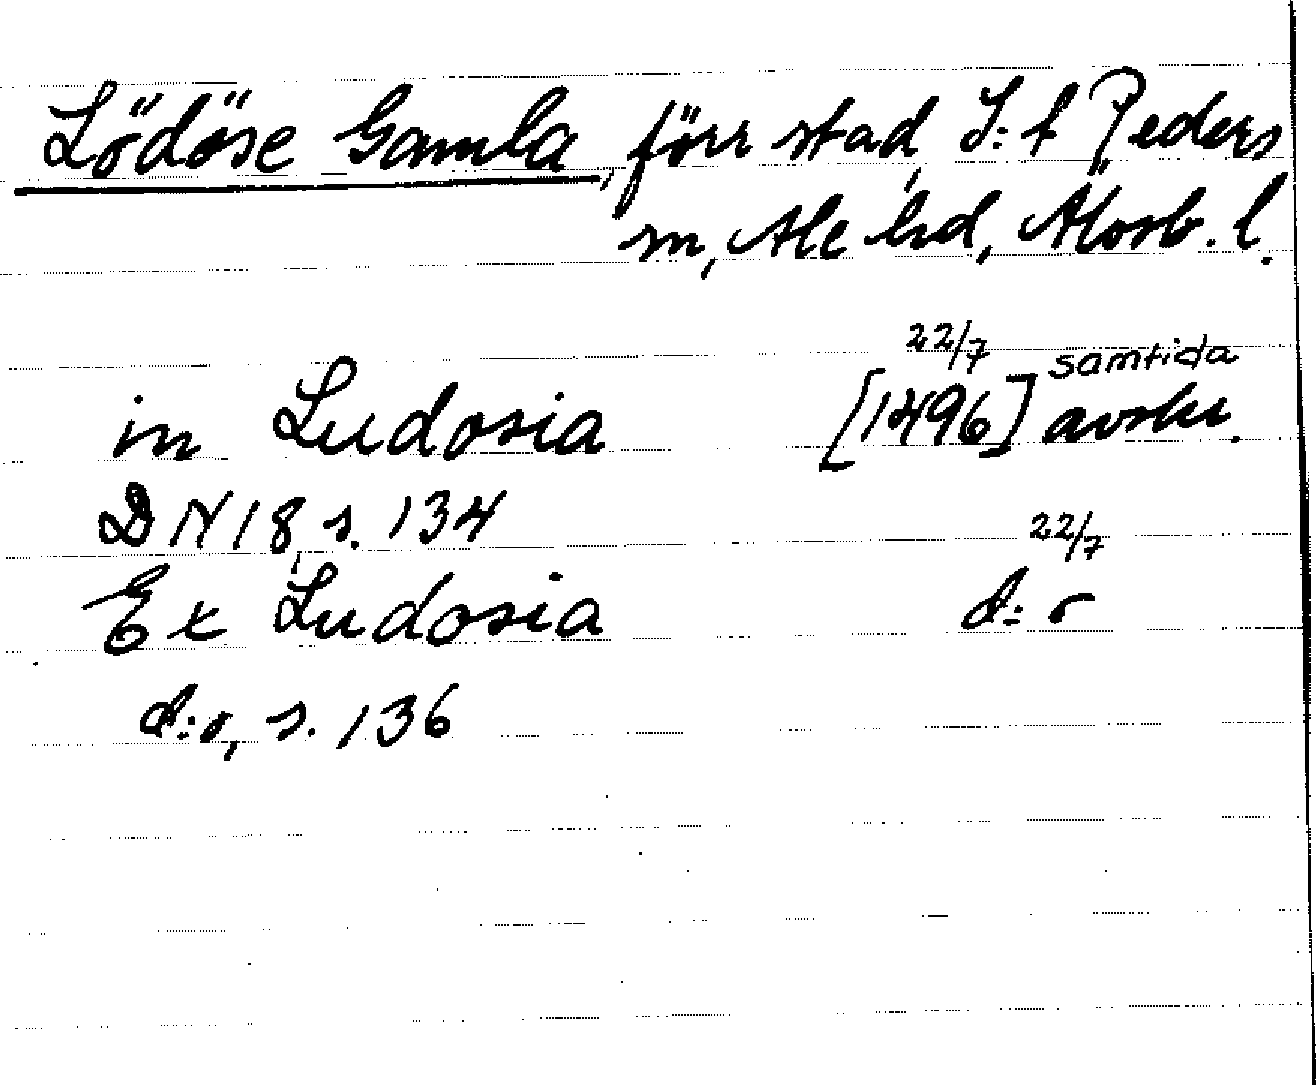 Lödöse Gamla, förr stad, S:t Peders
sn, Ale hd, Älvsb. l.
22/7 samtida
in Ludosia [1496] avskr.
DN 18, s. 134
22/7
Ex Ludosia d:o
d:o, s. 136